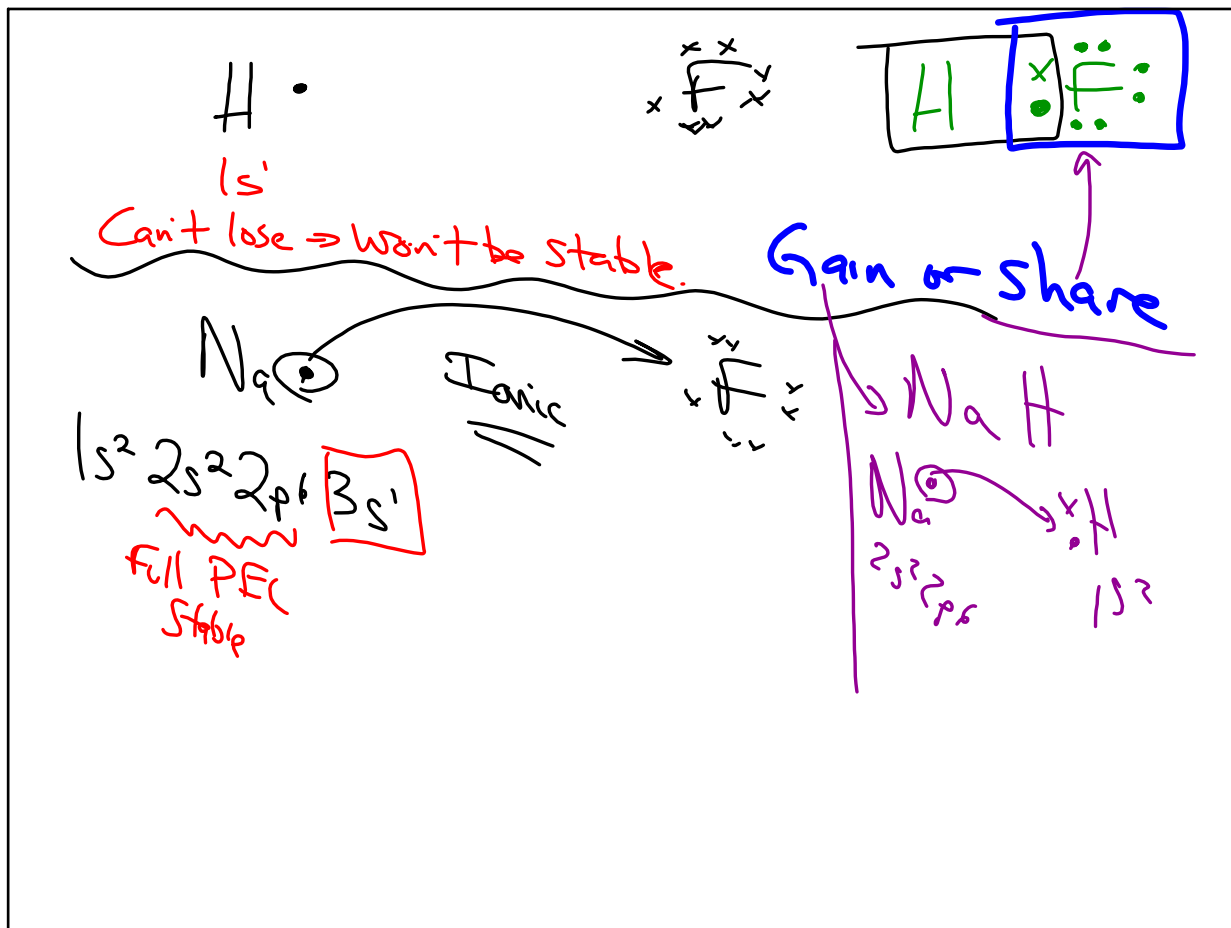 H • F H F
1s¹
Can't lose ⇒ Won't be stable.
Gain or share
Na Ionic F
1s² 2s² 2p⁶ 3s¹
Full PEL
Stable
Na H
Na H
2s² 2p⁶ 1s²